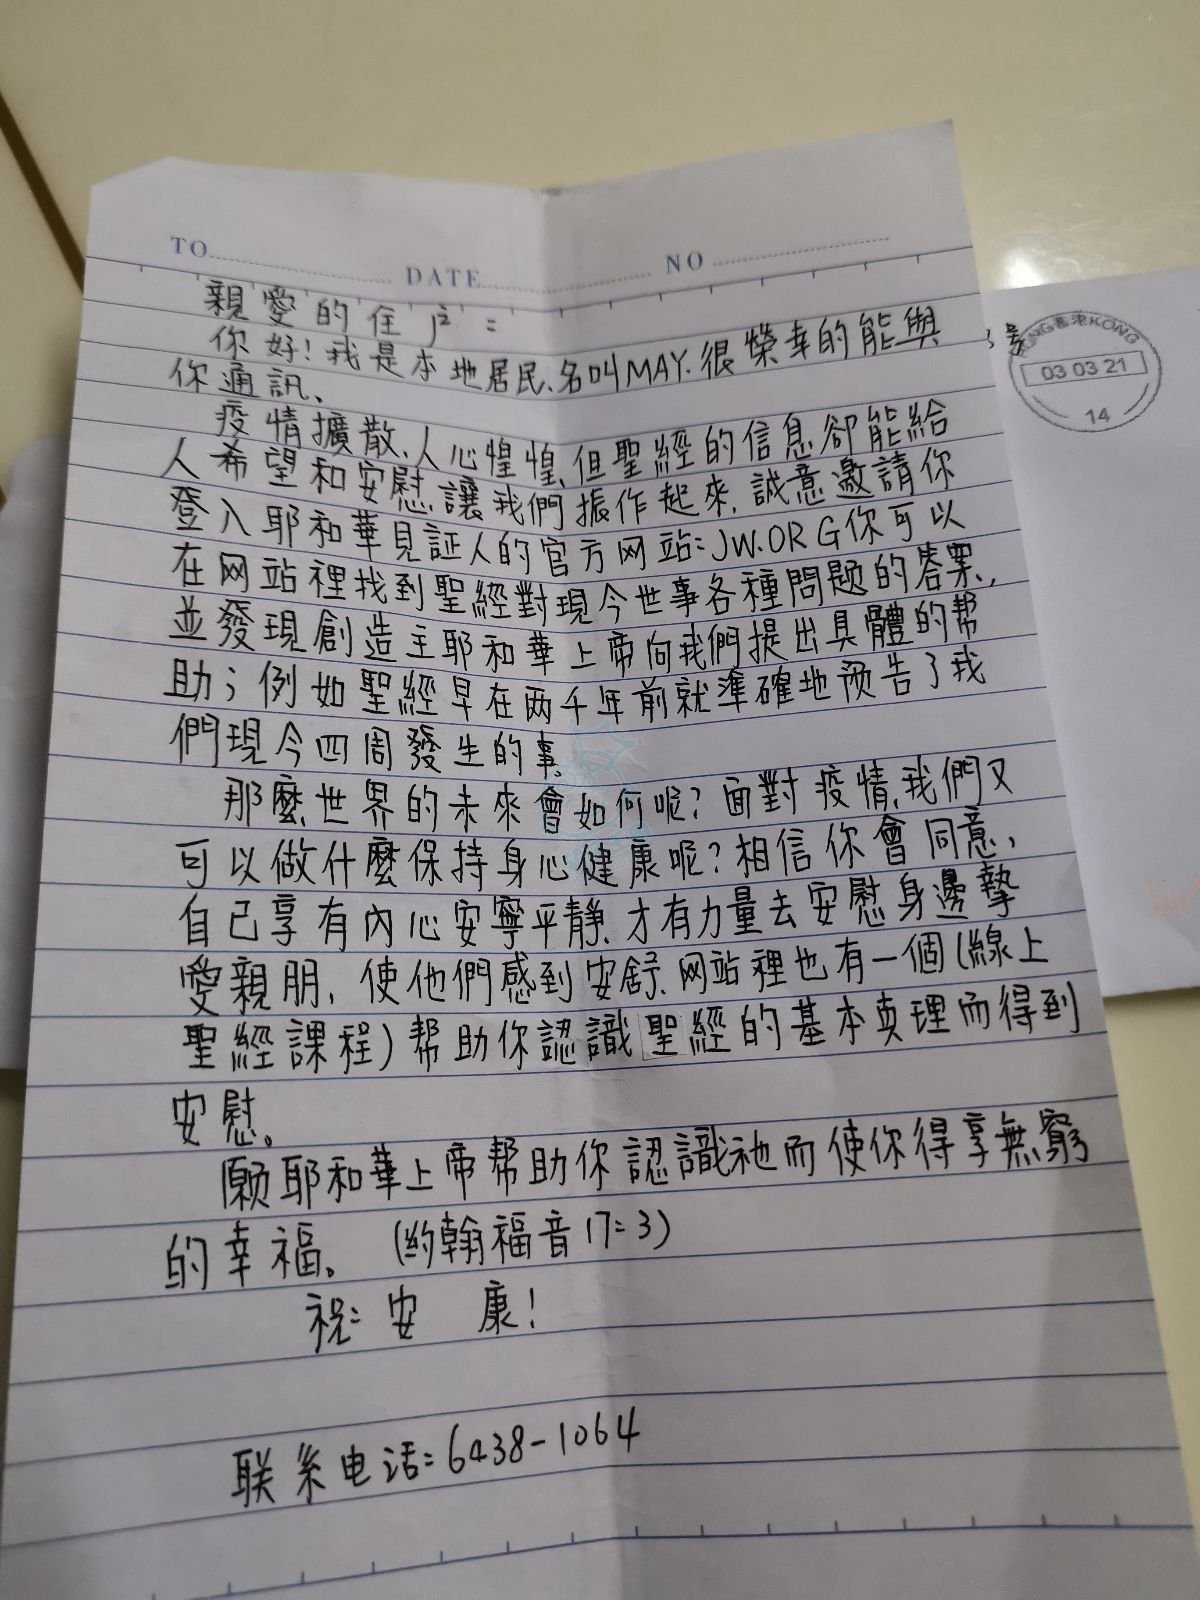 TO
DATE
NO
親愛的住户:
你好！我是本地居民、名叫MAY.很榮幸的能與
你通訊、
疫情擴散、人心惶惶、但聖經的信息卻能給
人希望和安慰讓我們振作起來、誠意邀請你
登入耶和華見証人的官方网站:JW.ORG你可以
在网站裡找到聖經對現今世事各種問題的答案,
並發現創造主耶和華上帝向我們提出具體的帮
助;例如聖經早在两千年前就準確地预告了我
們現今四周發生的事、
那麽世界的未來會如何呢?面對疫情、我們又
可以做什麽保持身心健康呢?相信你會同意,
自己享有內心安寧平靜、才有力量去安慰身邊摯
愛親朋、使他們感到安舒、网站裡也有一個(線上
聖經課程)帮助你認識聖經的基本真理而得到
安慰。
願耶和華上帝帮助你認識祂而使你得享無窮
的幸福。(約翰福音17:3)
祝:安 康!
联系电话:6438-1064
HONG香港KONG
03 03 21
14